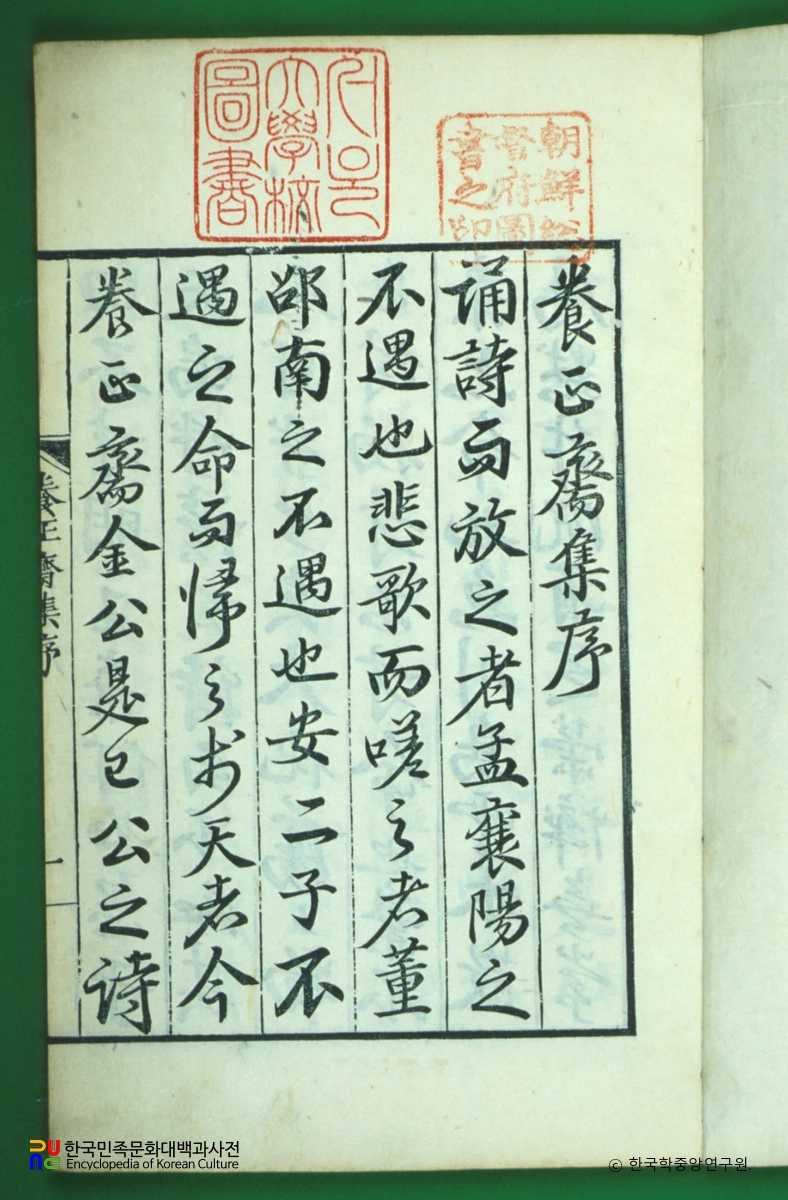 朝鮮總
督府圖
書之印
文學校
圖書
養正齋集序
誦詩而放之者孟襄陽之
不遇也悲歌而嗟之者董
邵南之不遇也安二子不
遇之命而歸之於天者今
養正齋金公是已公之詩
養正齋集序
一
한국민족문화대백과사전
Encyclopedia of Korean Culture
© 한국학중앙연구원.